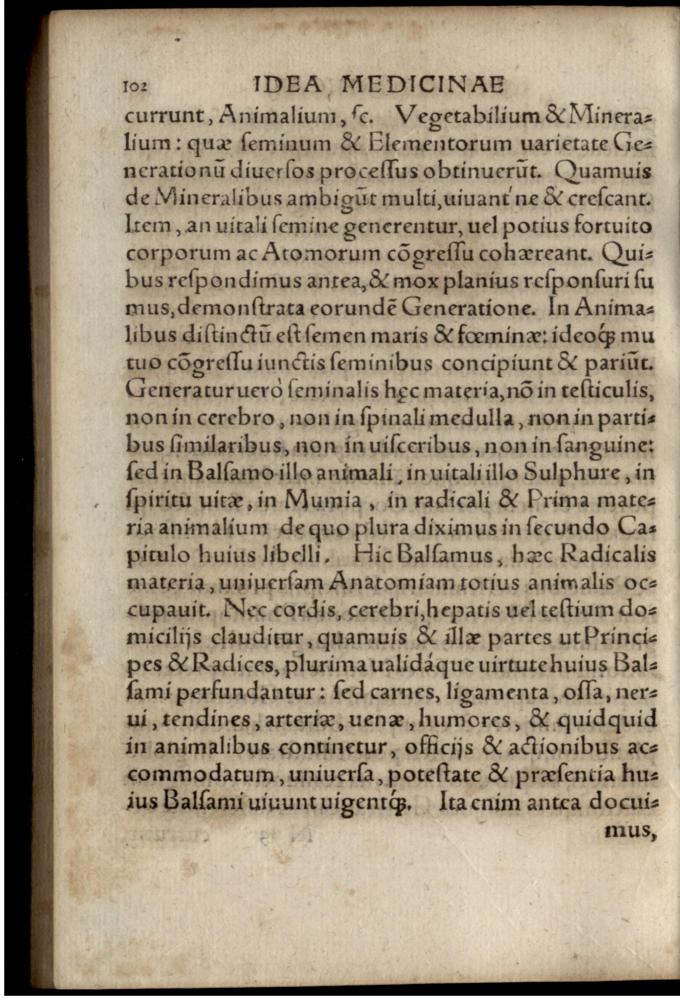 102 IDEA MEDICINAE
currunt, Animalium, ſc. Vegetabilium & Minera⸗
lium: quæ ſeminum & Elementorum uarietate Ge⸗
nerationũ diuerſos proceſſus obtinuerũt. Quamuis
de Mineralibus ambigũt multi, uiuant' ne & creſcant.
Item, an uitali ſemine generentur, uel potius fortuito
corporum ac Atomorum cõgreſſu cohæreant. Qui⸗
bus reſpondimus antea, & mox planius reſponſuri ſu
mus, demonſtrata eorundẽ Generatione. In Anima⸗
libus diſtinctũ eſt ſemen maris & fœminæ: ideoq́; mu
tuo cõgreſſu iunctis ſeminibus concipiunt & pariũt.
Generatur uerò ſeminalis hęc materia, nõ in teſticulis,
non in cerebro, non in ſpinali medulla, non in parti⸗
bus ſimilaribus, non in uiſceribus, non in ſanguine:
ſed in Balſamo illo animali, in uitali illo Sulphure, in
ſpiritu uitæ, in Mumia, in radicali & Prima mate⸗
ria animalium de quo plura diximus in ſecundo Ca⸗
pitulo huius libelli. Hic Balſamus, hæc Radicalis
materia, uniuerſam Anatomiam totius animalis oc⸗
cupauit. Nec cordis, cerebri, hepatis uel teſtium do⸗
micilijs clauditur, quamuis & illæ partes ut Princi⸗
pes & Radices, plurima ualidáque uirtute huius Bal⸗
ſami perfundantur: ſed carnes, ligamenta, oſſa, ner⸗
ui, tendines, arteriæ, uenæ, humores, & quidquid
in animalibus continetur, officijs & actionibus ac⸗
commodatum, uniuerſa, poteſtate & præſentia hu⸗
ius Balſami uiuunt uigentq́;. Ita enim antea docui⸗
mus,